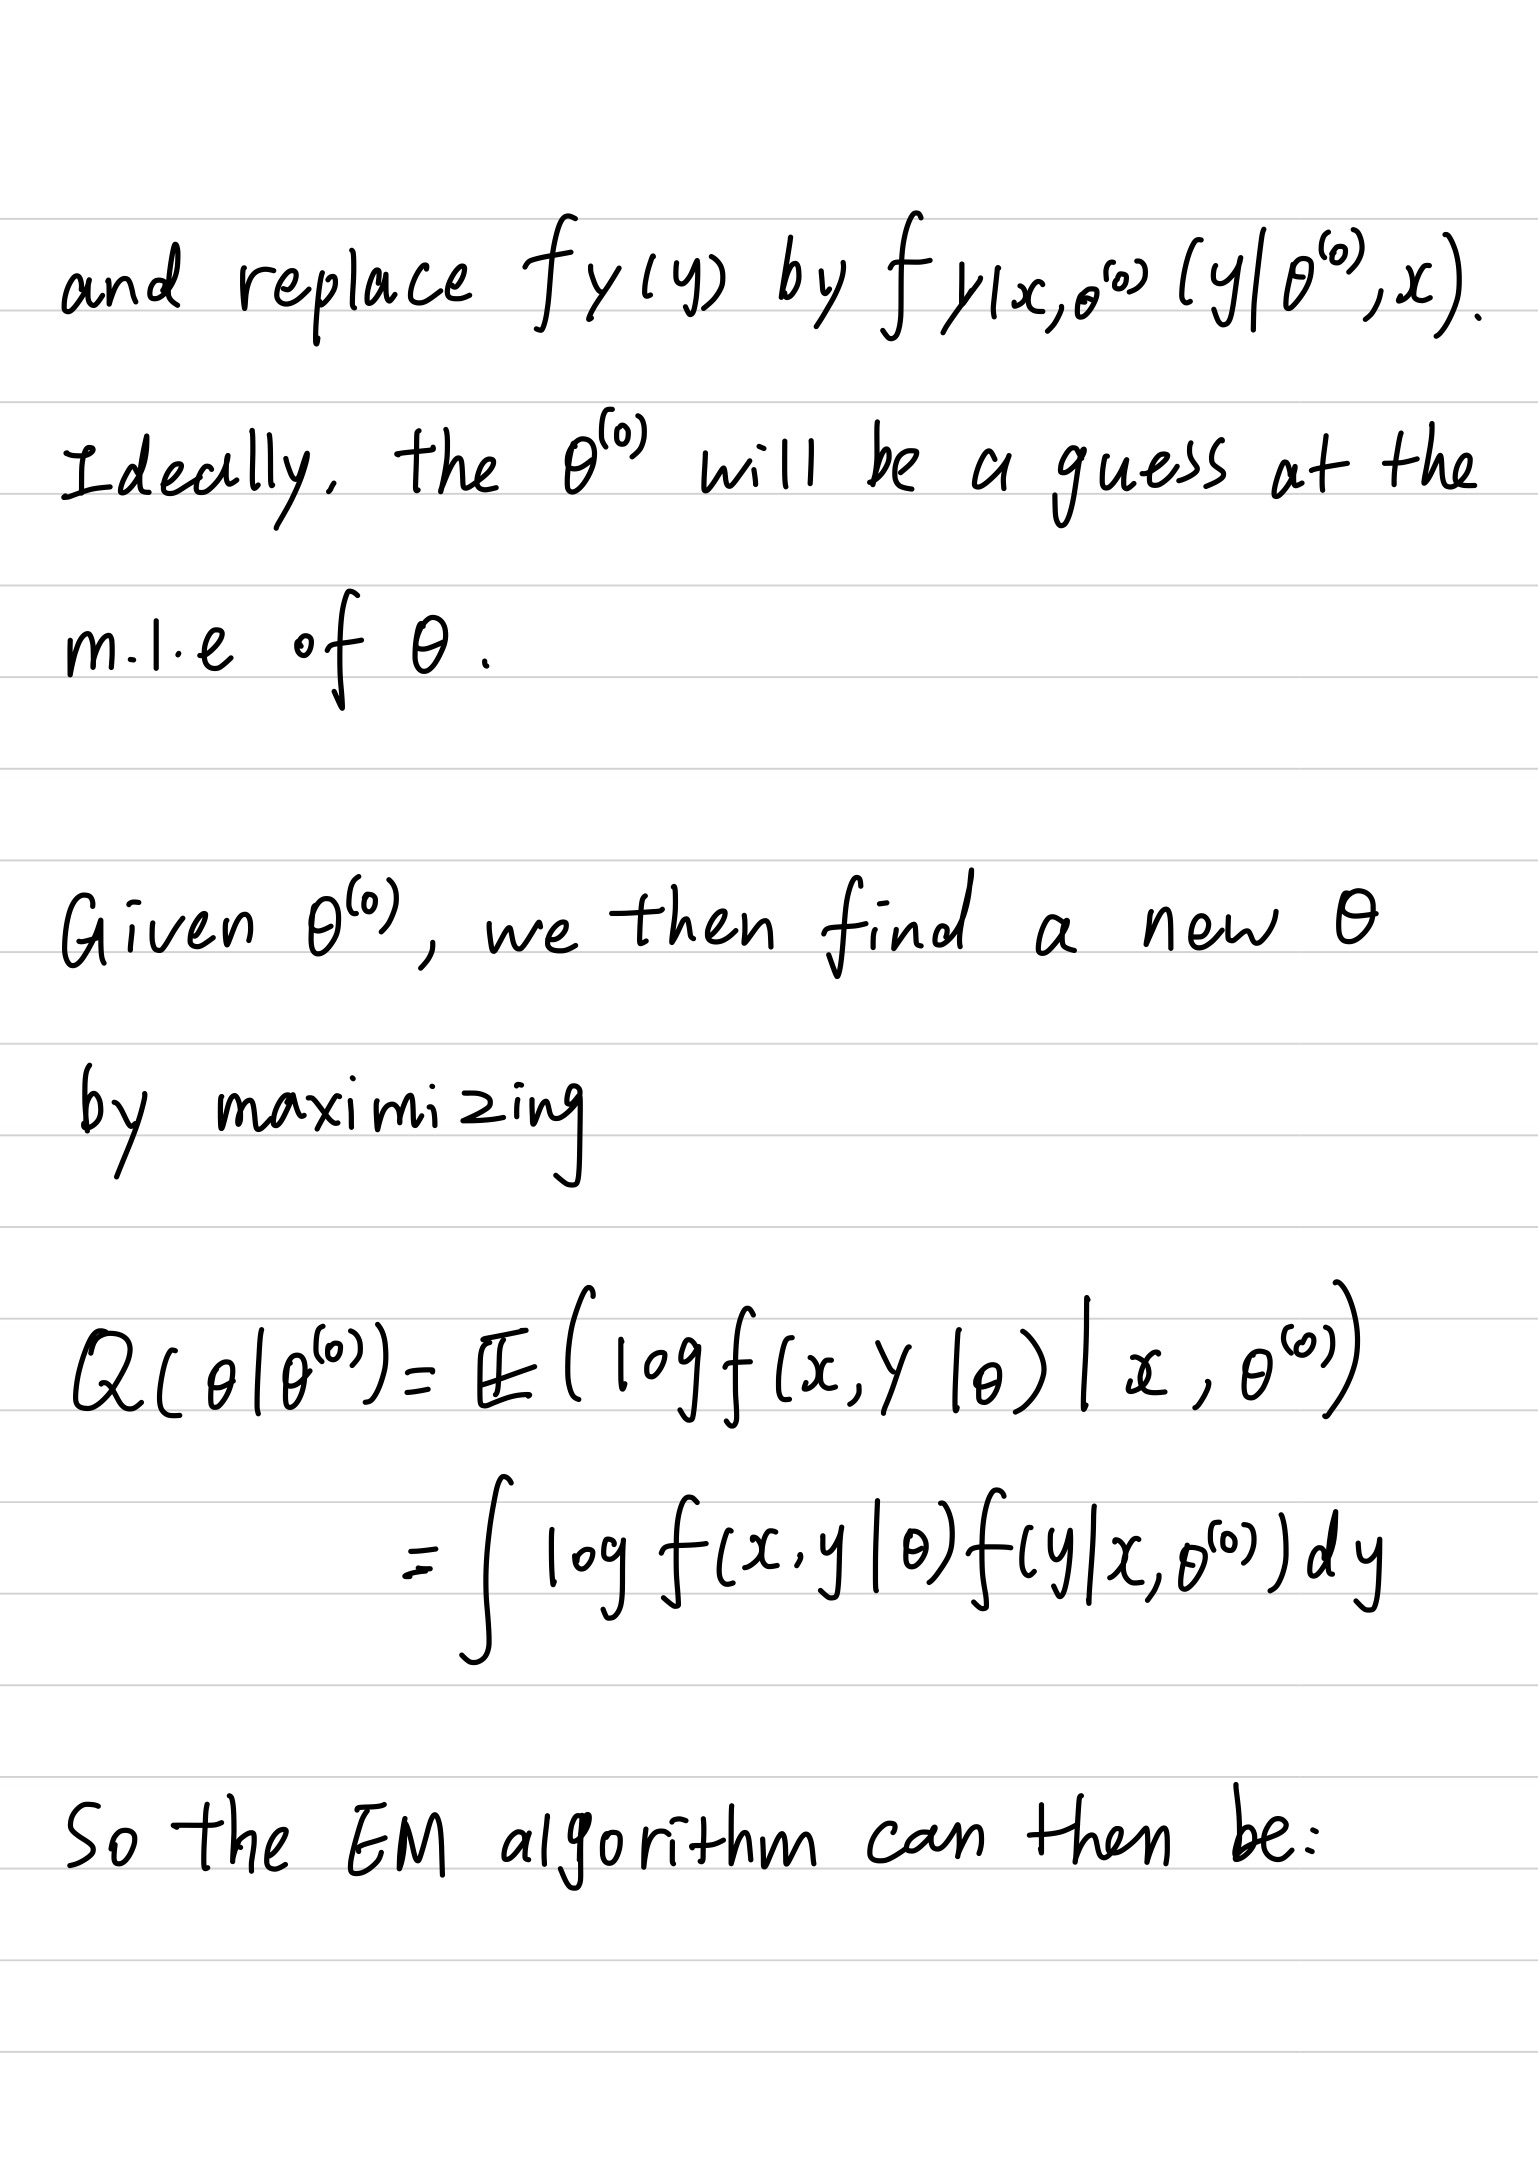 and replace f_Y(y) by f_{Y|x,θ^{(0)}}(y|θ^{(0)},x).
Ideally, the θ^{(0)} will be a guess at the
m.l.e of θ.
Given θ^{(0)}, we then find a new θ
by maximizing
Q(θ|θ^{(0)}) = 𝔼(log f(x,Y|θ)|x,θ^{(0)})
= ∫ log f(x,y|θ)f(y|x,θ^{(0)})dy
So the EM algorithm can then be: